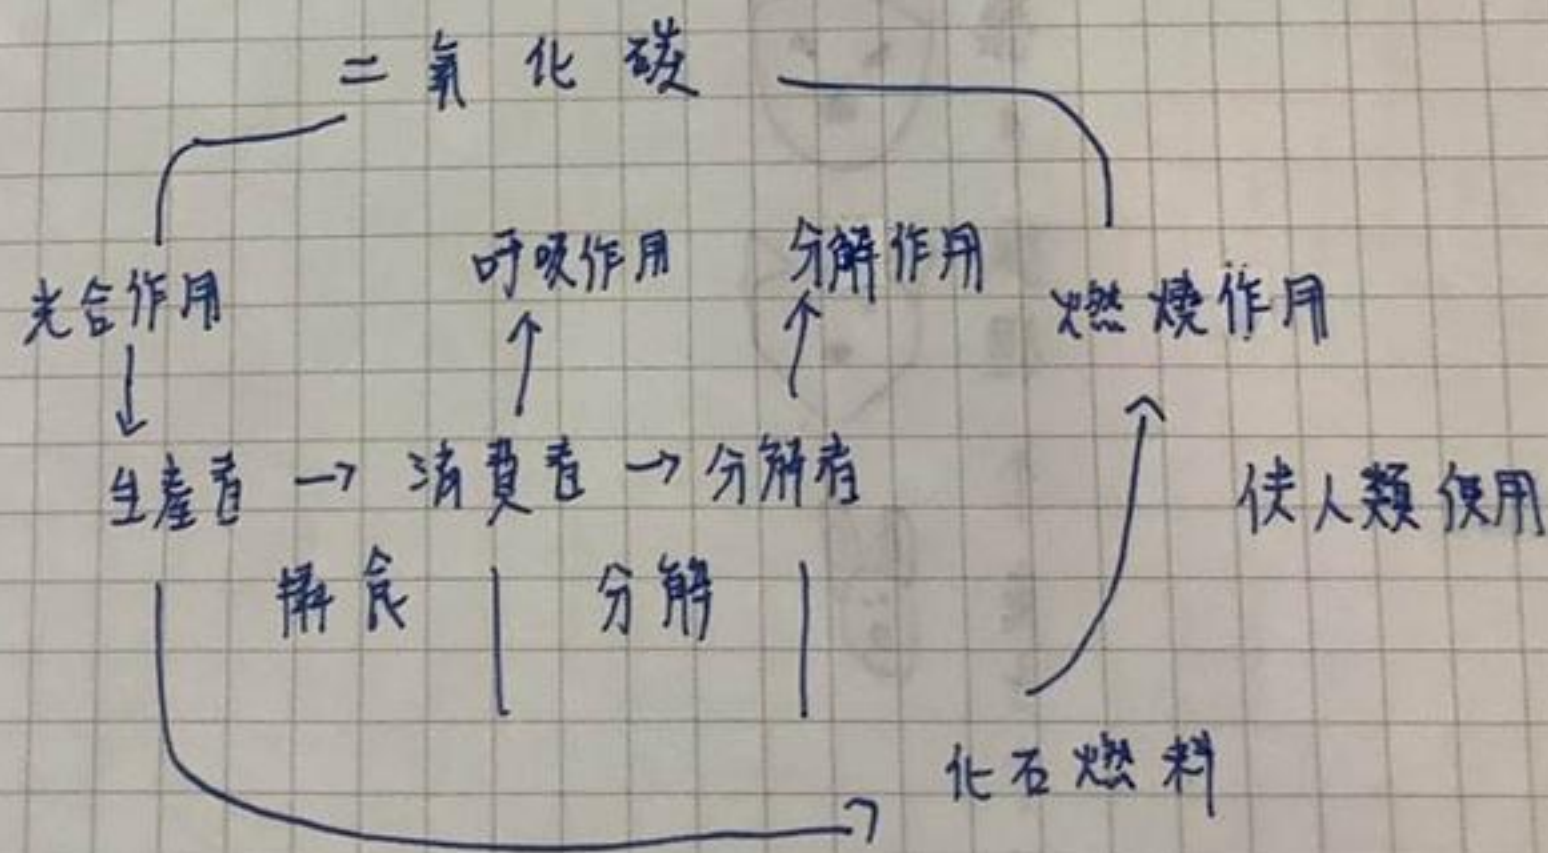 二氧化碳
呼吸作用 分解作用
光合作用 燃燒作用
生產者 → 消費者 → 分解者 供人類使用
攝食 分解
化石燃料